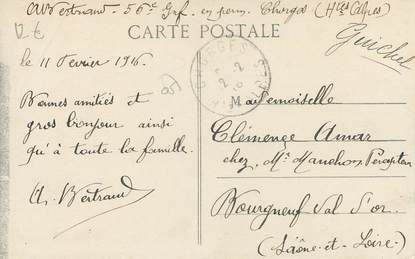 A. Bertrand. 56e Inf. en perm. Chorges (Htes Alpes)
12 €
CARTE POSTALE
Guichet
le 11 Février 1916.
87
CHORGES
Bonnes amitiés et
gros bonjour ainsi
qu'à toute la famille.
A. Bertrand
Mademoiselle
Clémence Amar
chez, Mr. Percepteur
Bourgneuf Val d'or
(Saône-et-Loire)